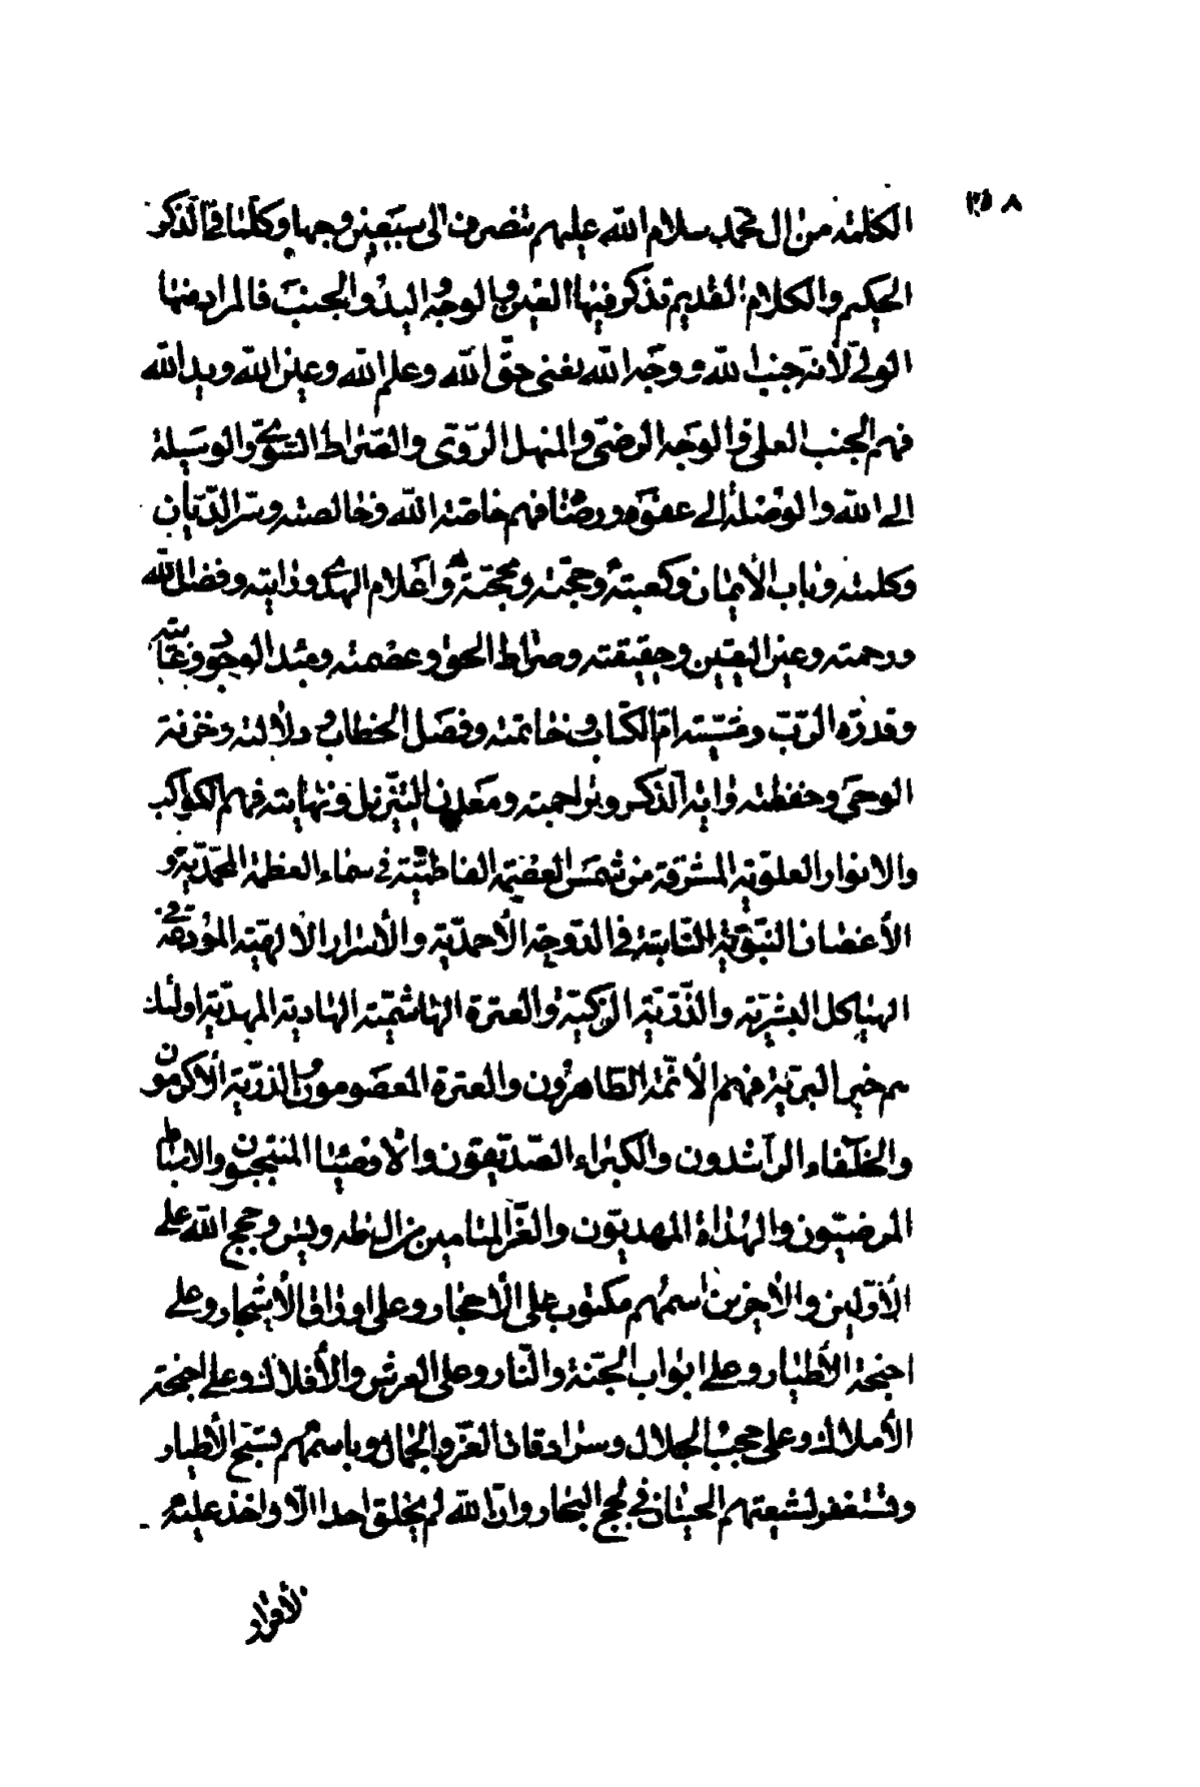 الكلمة من ال محمد سلام الله عليهم تنصرف الى سبعين وجها وكلما فى الذكر
الحكيم والكلام القديم تذكر فيها العين والوجه واليد والجنب فالمراد منها
الولى لانه جنب الله ووجه الله يعنى حق الله وعلم الله وعين الله ويد الله
فهم الجنب العلى والوجه الرضى والمنهل الروى والصراط السوى والوسيلة
الى الله والوصلة الى عفوه ورضا فهم خاصة الله وخالصته وسر الديان
وكلمته وباب الأيمان وكعبته وحجته ومحجته واعلام الهدى ورايته وفضل الله
ورحمته وعين اليقين وحقيقته وصراط الحق وعصمته ومبدا الوجود وغايته
وقدرة الرب ومشيته ام الكتاب وخاتمته وفصل الخطاب ودلالته وخزنة
الوحى وحفظته واية الذكر وتراجمته ومعدن التنزيل ونهايته فهم الكواكب
والانوار العلوية المشرقة من شمس العصمة الفاطمية فى سماء العظمة المحمدية و
الأغصان النبوية النابتة فى الدوحة الأحمدية والأسرار الالهية المودعة فى
الهياكل البشرية والذرية الزكية والعترة الهاشمية الهادية المهدية اولئك
هم خير البرية فهم الأئمة الطاهرون والعترة المعصومون والذرية الأكرمون
والخلفاء الراشدون والكبراء الصديقون والأوصيا المنتجبون والاسباط
المرضيون والهداة المهديون والغر الميامين من ال طه ويس وحجج الله على
الأولين والأخرين اسمهم مكتوب على الأحجار وعلى اوراق الأشجار وعلى
اجنحة الأطيار وعلى ابواب الجنة والنار وعلى العرش والأفلاك وعلى اجنحة
الأملاك وعلى حجب الجلال وسرادقات العز والجمال وباسمهم تسبح الأطيار
وتستغفر لشيعتهم الحيتان فى لجج البحار وان الله لم يخلق احدا الا واخذ عليه
لأقرار